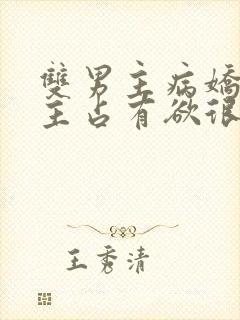 雙男主病嬌
主占有欲很
王秀清